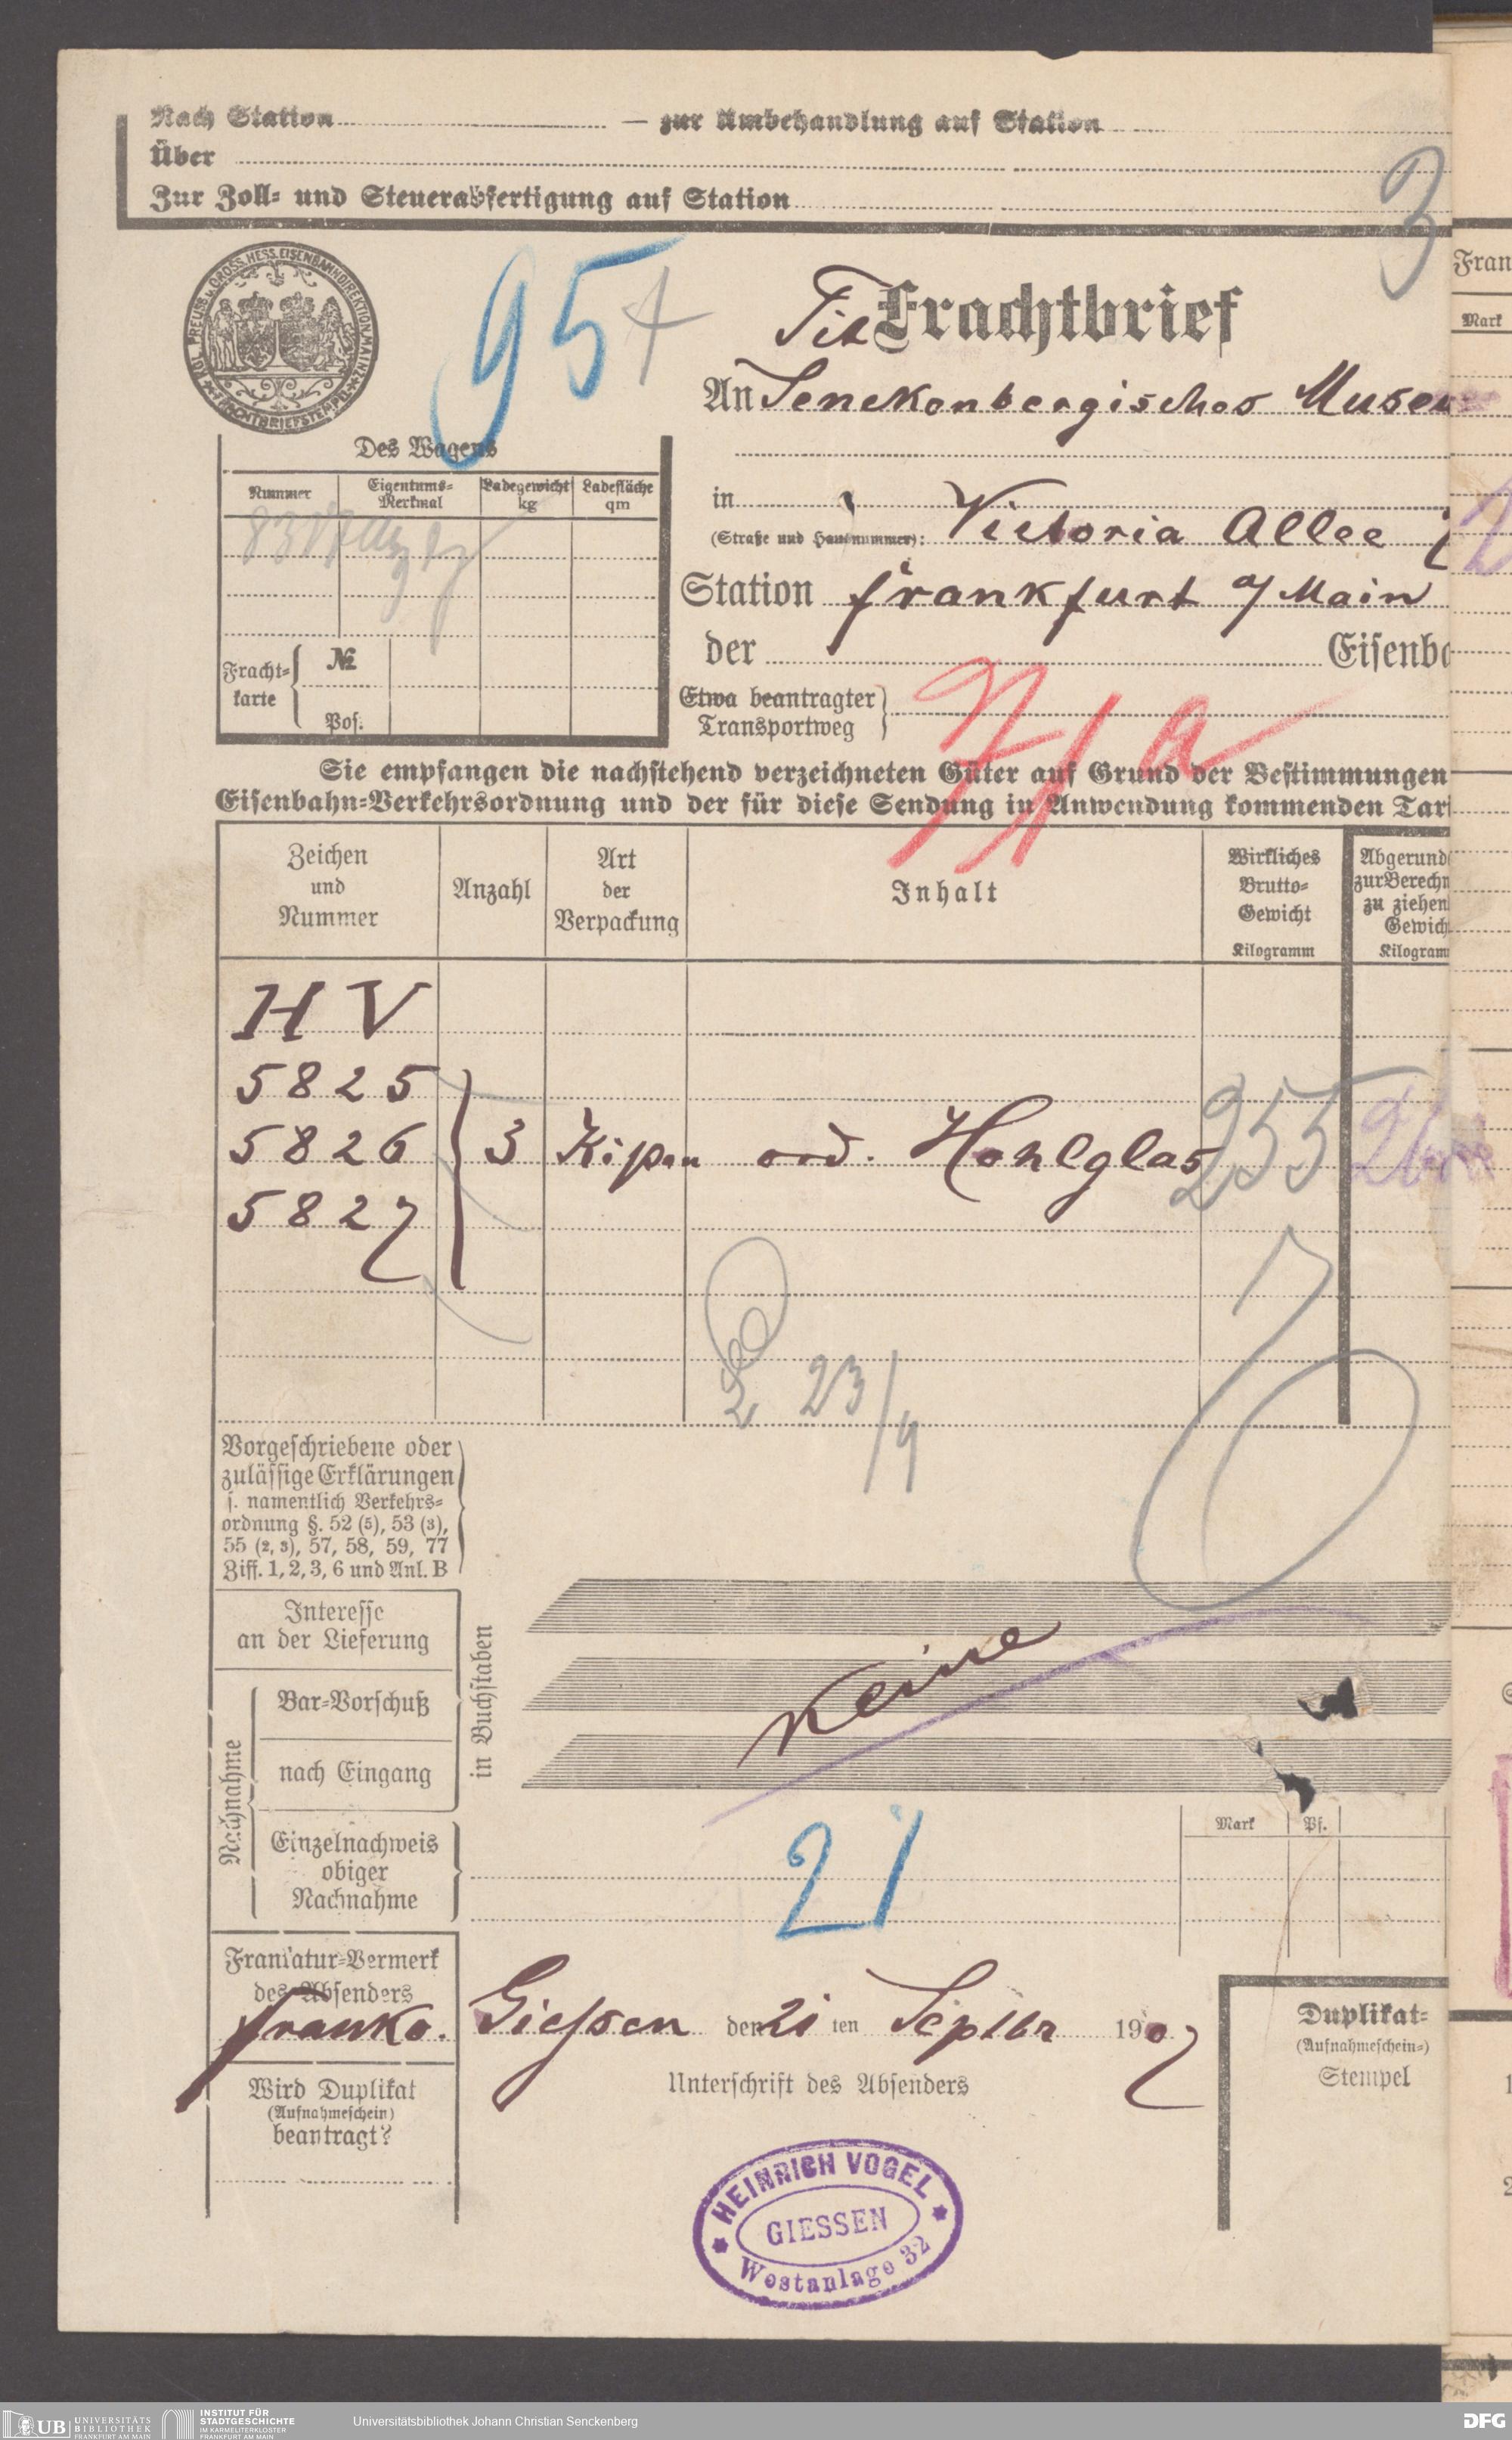 Nach Station — zur Umbehandlung auf Station
Über
Zur Zoll- und Steuerabfertigung auf Station
3
KGL. PREUSS. u. GROSS. HESS. EISENBAHNDIREKTION MAINZ
FRACHTBRIEFSTEMPEL
95
Tit Frachtbrief
An Senckenbergisches Museu
in
(Straße und Hausnummer): Victoria Allee 7
Station Frankfurt a/Main
der Eisenba
Etwa beantragter
Transportweg
Des Wagens
Nummer Eigentums-Merkmal Ladegewicht kg Ladefläche qm
Fracht-karte № Pos.
Sie empfangen die nachstehend verzeichneten Güter auf Grund der Bestimmungen
Eisenbahn-Verkehrsordnung und der für diese Sendung in Anwendung kommenden Tari
Zeichen und Nummer Anzahl Art der Verpackung Inhalt Wirkliches Brutto-Gewicht Kilogramm Abgerund zur Berechn zu ziehen Gewich Kilogram
H V
5825
5826 3 Kisten ord. Hohlglas 255
5827
23/9
Vorgeschriebene oder
zulässige Erklärungen
s. namentlich Verkehrs-
ordnung §. 52 (5), 53 (3),
55 (2, 3), 57, 58, 59, 77
Ziff. 1, 2, 3, 6 und Anl. B
Interesse
an der Lieferung
Nachnahme
Bar-Vorschuß
nach Eingang
in Buchstaben
Keine
Einzelnachweis
obiger
Nachnahme
Mark Pf.
21
Frankatur-Vermerk
des Absenders
franko.
Giessen den 21 ten Septbr 1907
Unterschrift des Absenders
Wird Duplikat
(Aufnahmeschein)
beantragt?
Duplikat-
(Aufnahmeschein-)
Stempel
HEINRICH VOGEL
GIESSEN
Westanlage 32
Fran
Mark
UB UNIVERSITÄTS BIBLIOTHEK FRANKFURT AM MAIN
INSTITUT FÜR STADTGESCHICHTE IM KARMELITERKLOSTER FRANKFURT AM MAIN
Universitätsbibliothek Johann Christian Senckenberg
DFG